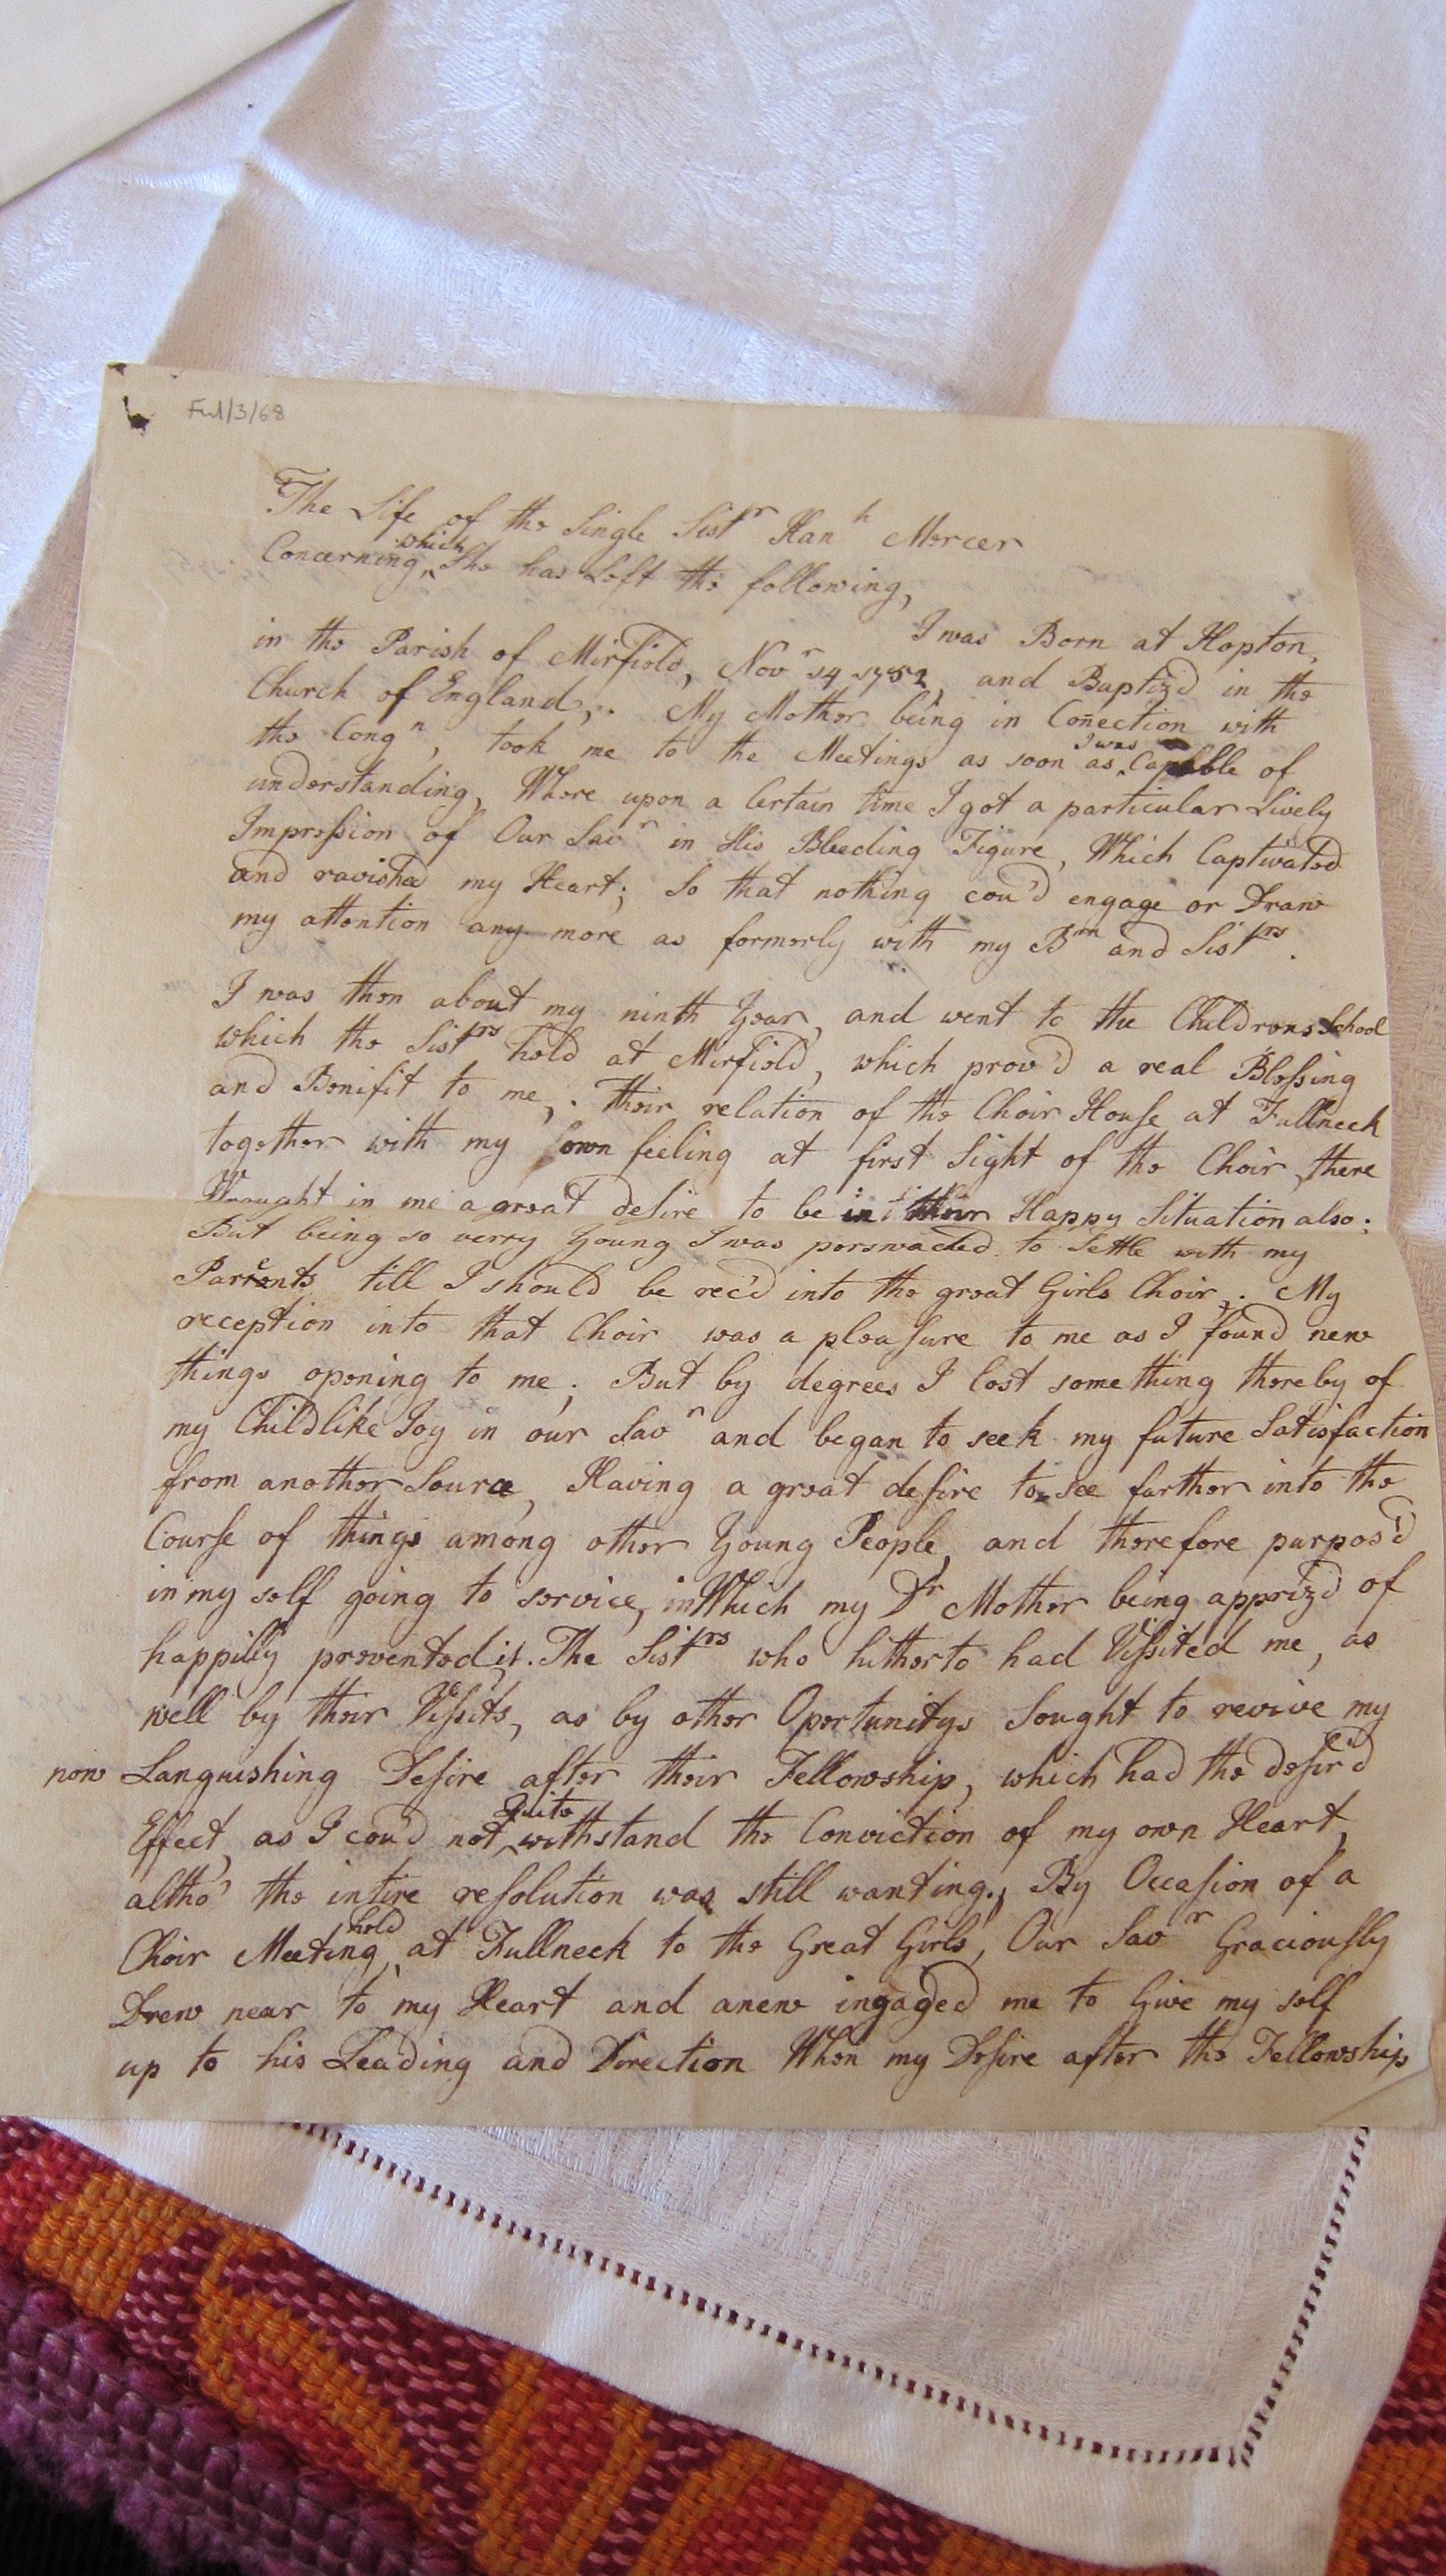 Ful/3/68
The Life of the Single Sistr Hanh Mercer
Concerning which She has Left the following,
I was Born at Hopton,
in the Parish of Mirfield, Novr 14 1752, and Baptiz'd in the
Church of England,. My Mother being in Conection with
the Congn, took me to the Meetings as soon as I was Capable of
understanding, Where upon a Certain time I got a particular Lively
Impression of Our Savr in His Bleeding Figure, Which Captivated
and ravished my Heart; So that nothing cou'd engage or Draw
my attention any more as formerly with my Brn and Sistrs.
I was then about my ninth Year, and went to the Childrens School
which the Sistrs held at Mirfield, which prov'd a real Blessing
and Benifit to me,. Their relation of the Choir House at Fullneck
together with my own feeling at first Sight of the Choir there
Wrought in me a great desire to be in their Happy Situation also:
But being so verry Young I was perswaded to Settle with my
Parents till I should be rec'd into the great Girls Choir,. My
reception into that Choir was a pleasure to me as I found new
things opening to me; But by degrees I lost something thereby of
my Childlike Joy in our Savr and began to seek my future Satisfaction
from another Source, Having a great desire to see farther into the
Course of things among other Young People, and therefore purpos'd
in my self going to service, in Which my Dr Mother being appriz'd of
happilly prevented it. The Sistrs who hitherto had Vissited me, as
well by their Vissits, as by other Oportunitys Sought to revive my
now Languishing Desire after their Fellowship, which had the desir'd
Effect, as I cou'd not Quite withstand the Conviction of my own Heart,
altho' the intire resolution was still wanting,. By Occasion of a
Choir Meeting held at Fullneck to the Great Girls, Our Savr Graciously
Drew near to my Heart and anew ingaged me to Give my self
up to his Leading and Direction When my Desire after the Fellowship